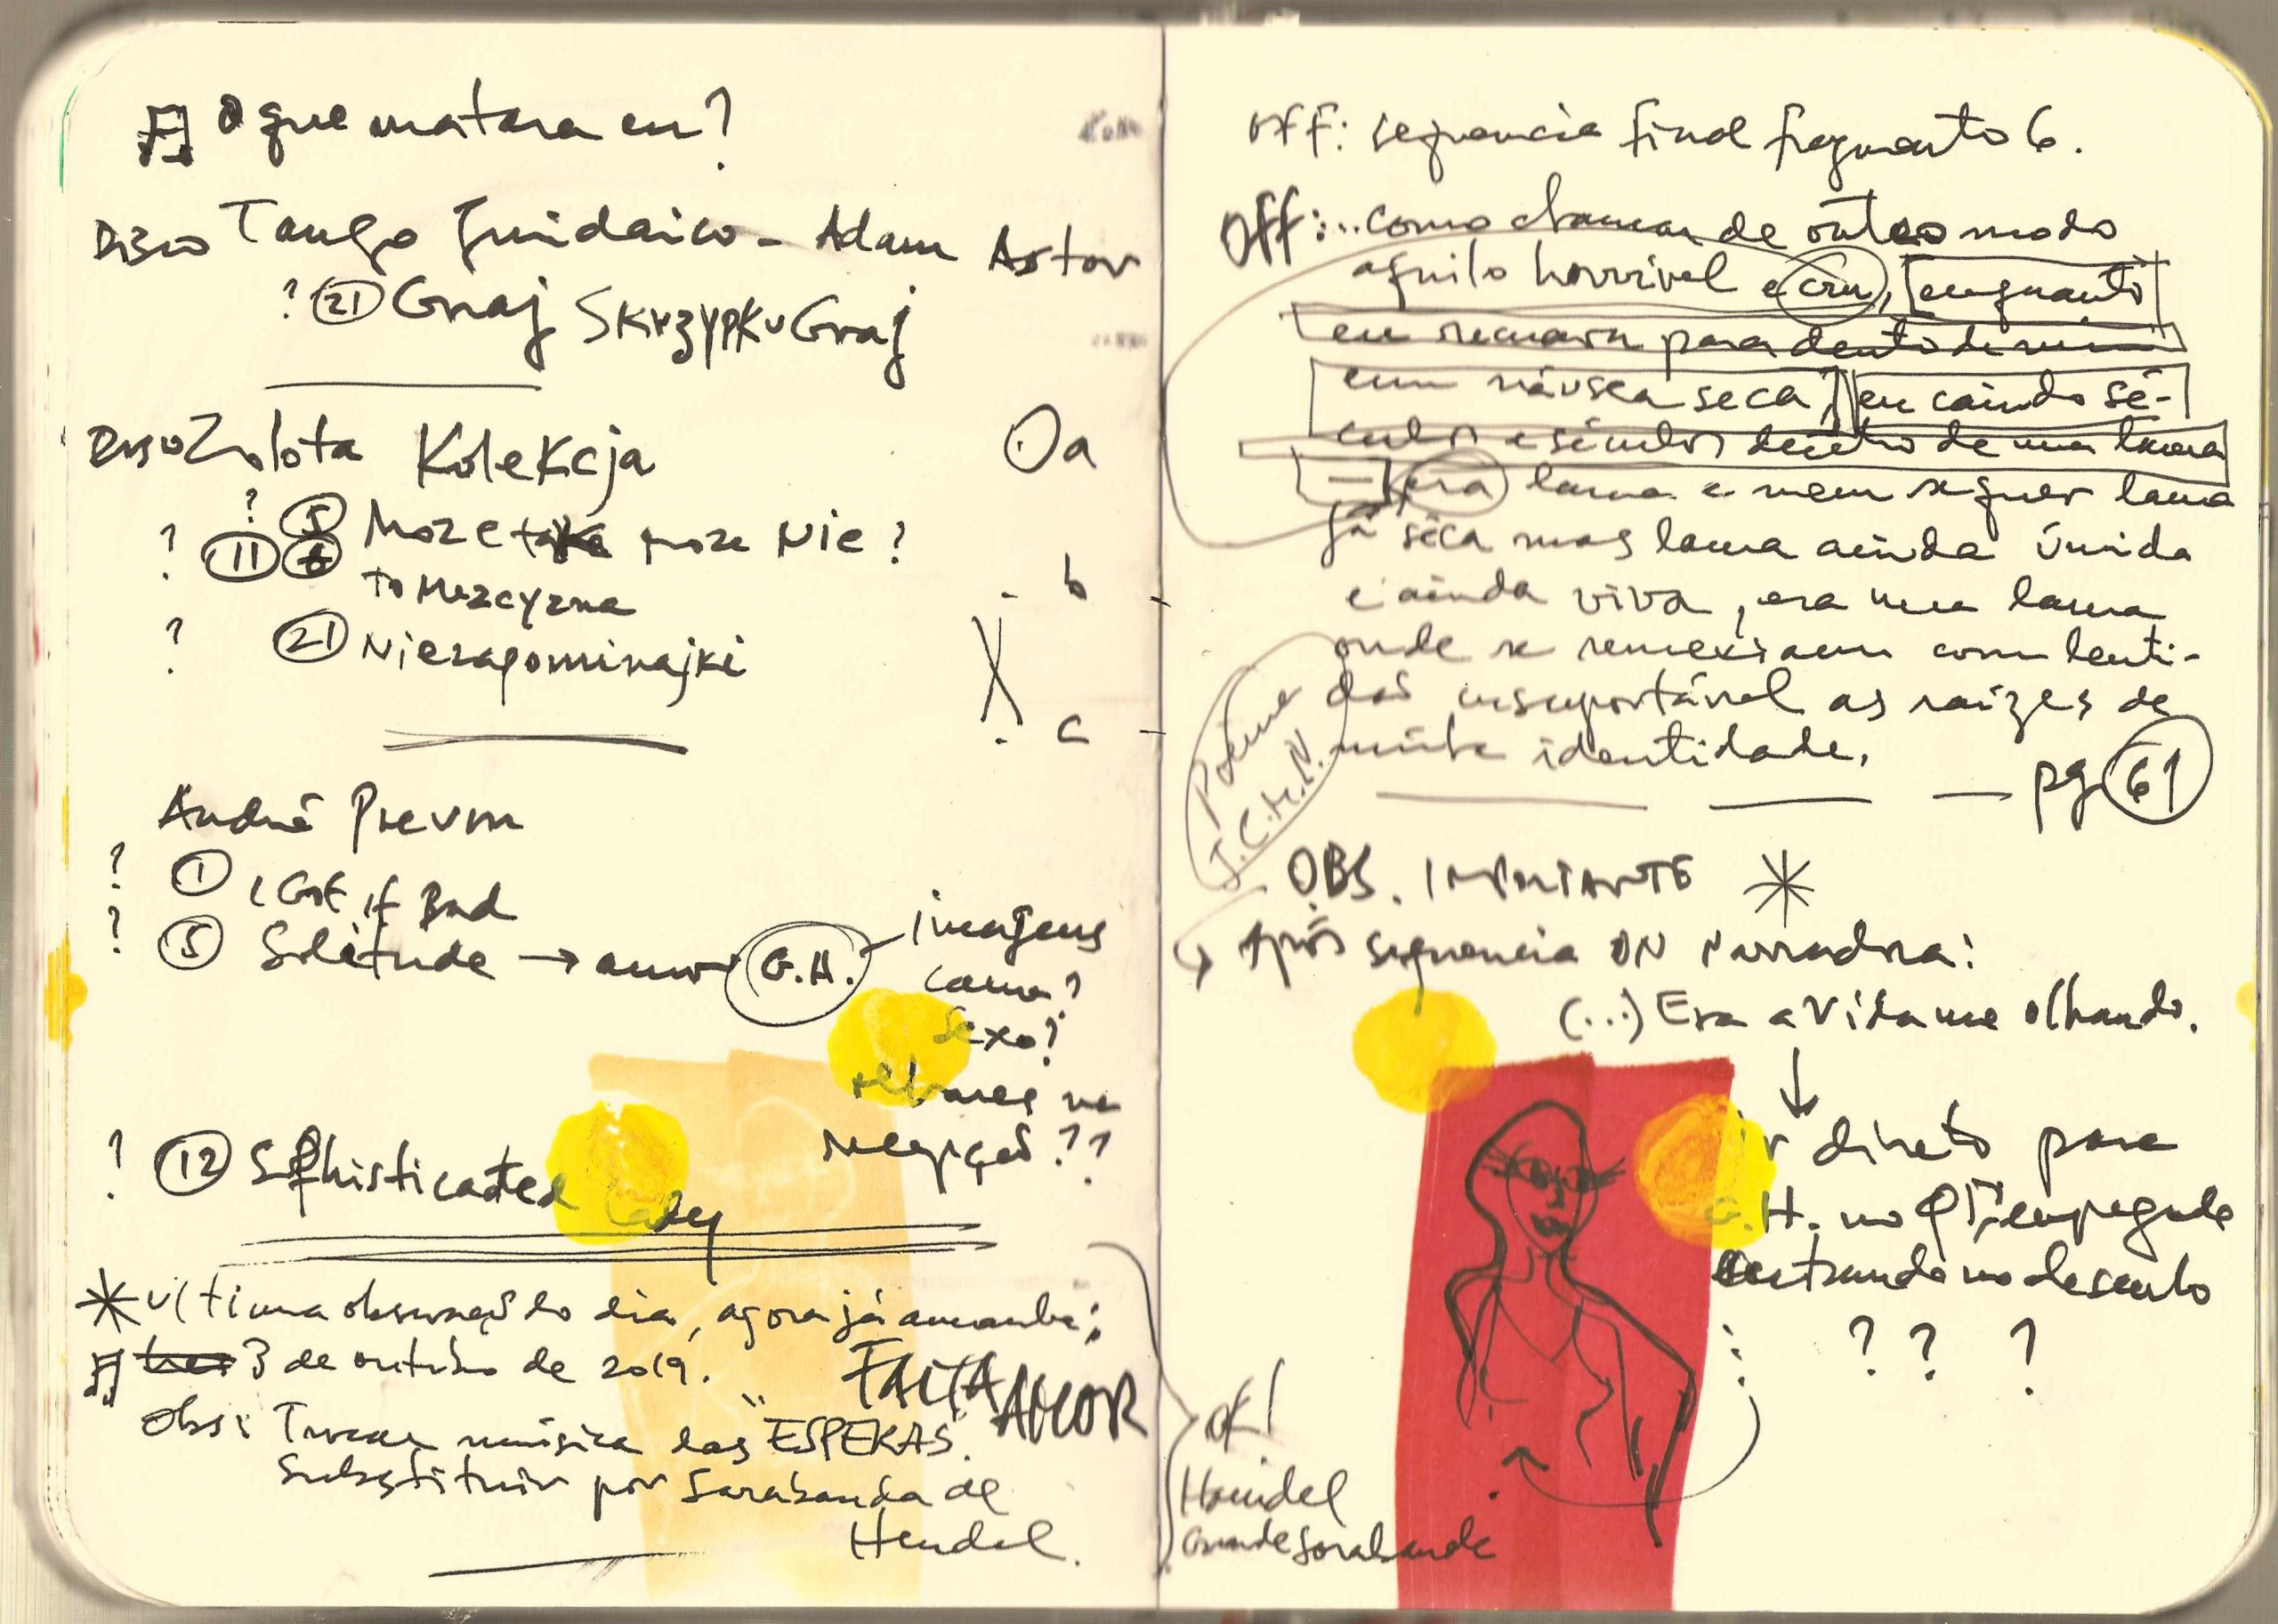 O que matara eu?
Disco Tango Juidaico - Adam Astor
? 21 Graj Skrzypku Graj
Disco Zolota Kolekcja
a
? 5 Moze tak moze Nie?
? 11 6
To Mezcyzna
b
? 21 Niezapominajki
c
André Previn
? 1 I Got it Bad
? 5 Solitude → amor G.H. imagens
cama?
Sexo?
olhares na
recepção??
? 12 Sophisticated Lady
* última observação do dia, agora já amanhã;
3 de outubro de 2019.
FALTA AMOR
Obs: Trocar música das "ESPEKAS".
Substituir por Sarabanda de
Hendel.
Off: sequencia final fragmento 6.
Off: ...como chamar de outro modo
aquilo horrível e cru, enquanto
eu recuava para dentro de mim
em náusea seca, eu caindo sé-
culos e séculos dentro de uma lama
— era lama e nem sequer lama
já seca mas lama ainda úmida
e ainda viva, era uma lama
onde se remexiam com lenti-
dão insuportável as raízes de
minha identidade.
pg 61
Poema
J.C.M.N.
OBS. IMPORTANTE *
Após sequencia ON Narradora:
(...) Era a Vida me olhando.
↓
ir direto para
G.H. no QT. empregada
entrando no descanso
? ? ?
ok!
Handel
Grande Sarabande